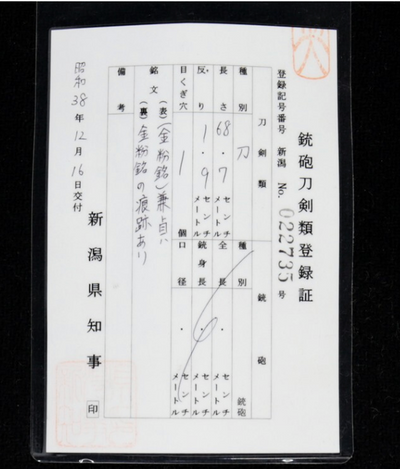 銃砲刀剣類登録証
登録記号番号 新潟 No. 022735 号
刀剣類
種別 刀
長さ 68.7 センチメートル
反り 1.9 センチメートル
目くぎ穴 1 個
銘文 (表)(金粉銘)兼貞
(裏)金粉銘の痕跡あり
備考
銃砲
種別 銃砲
全長 . センチメートル
銃身長 . センチメートル
口径 . センチメートル
昭和38年12月16日交付
新潟県知事 印